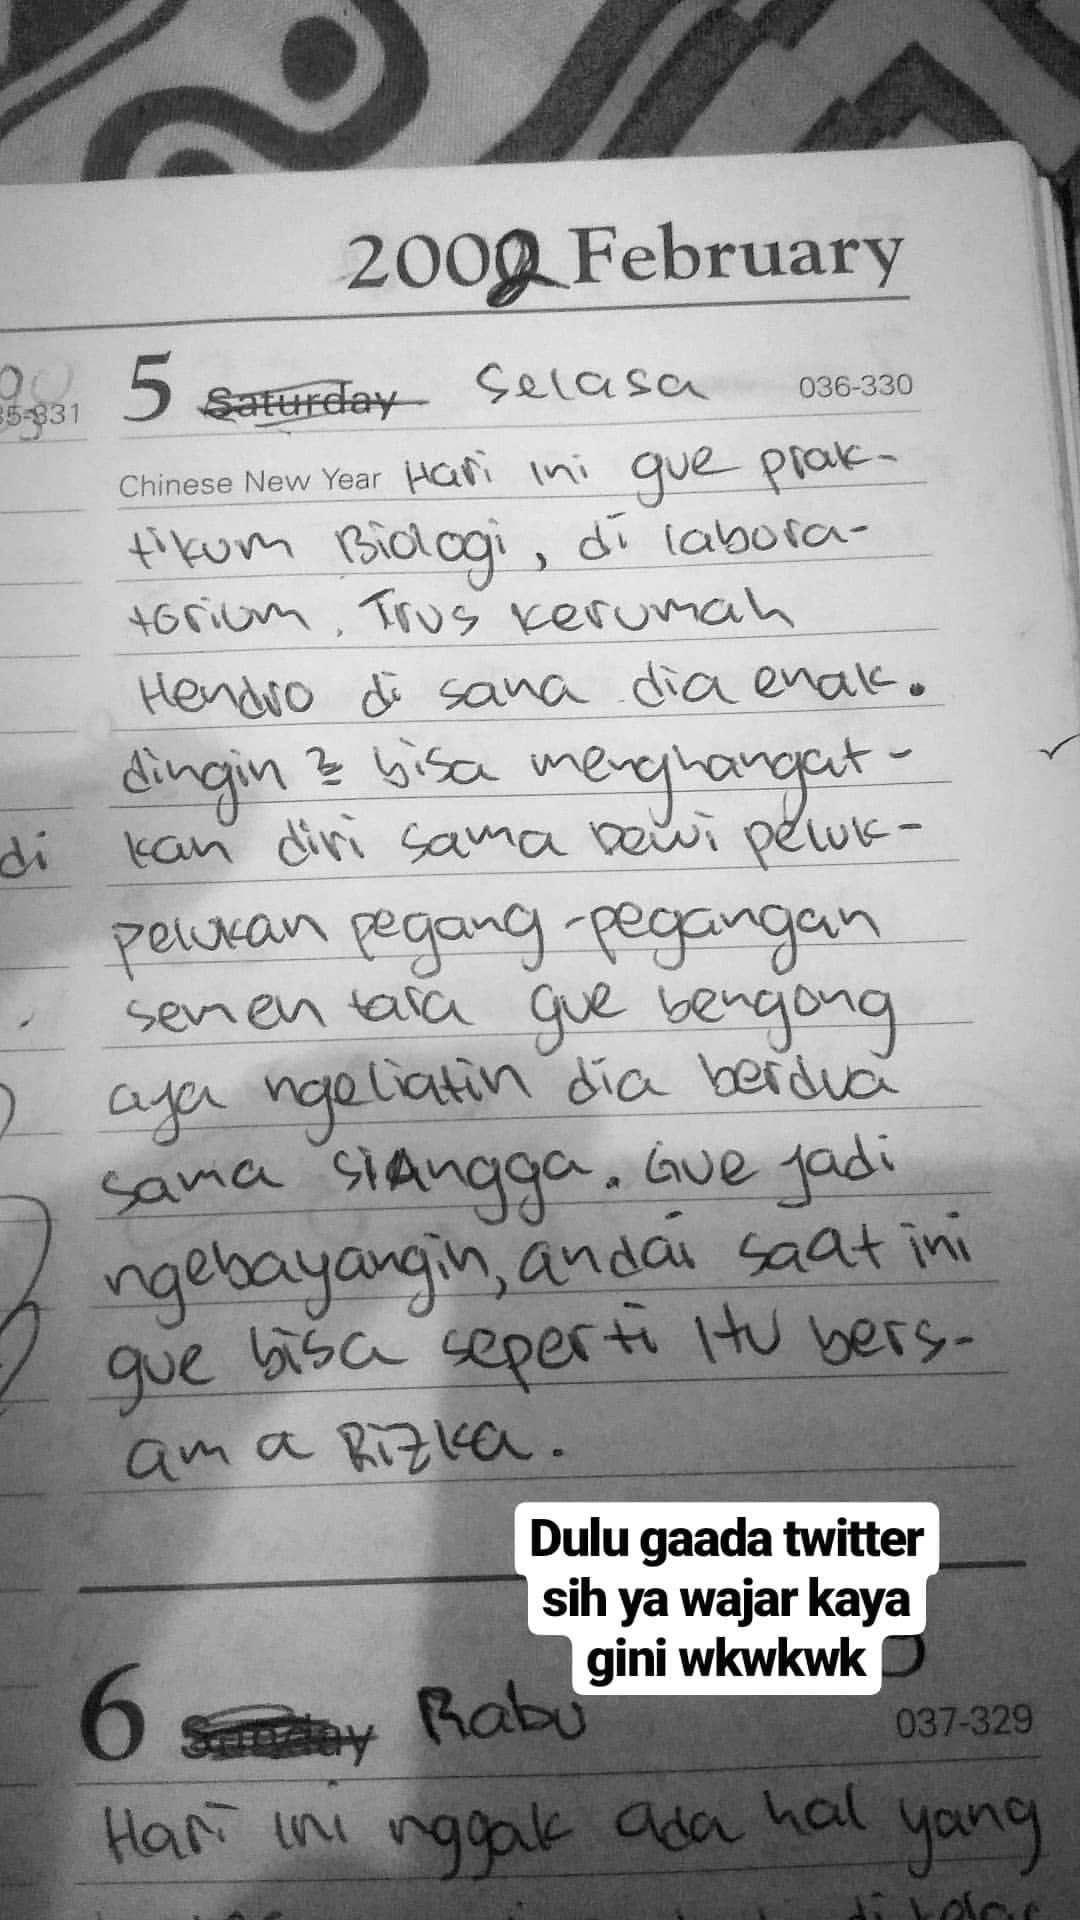 2002 February
5 Saturday Selasa 036-330
Chinese New Year Hari ini gue prak-
tikum Biologi, di labora-
torium. Trus kerumah
Hendro di sana dia enak.
dingin2 bisa menghangat-
di kan diri sama Dewi peluk-
pelukan pegang-pegangan
sementara gue bengong
aja ngeliatin dia berdua
sama siAngga. Gue jadi
ngebayangin, andai saat ini
gue bisa seperti itu bers-
ama Rizka.
Dulu gaada twitter
sih ya wajar kaya
gini wkwkwk
6 Sunday Rabu 037-329
Hari ini nggak ada hal yang